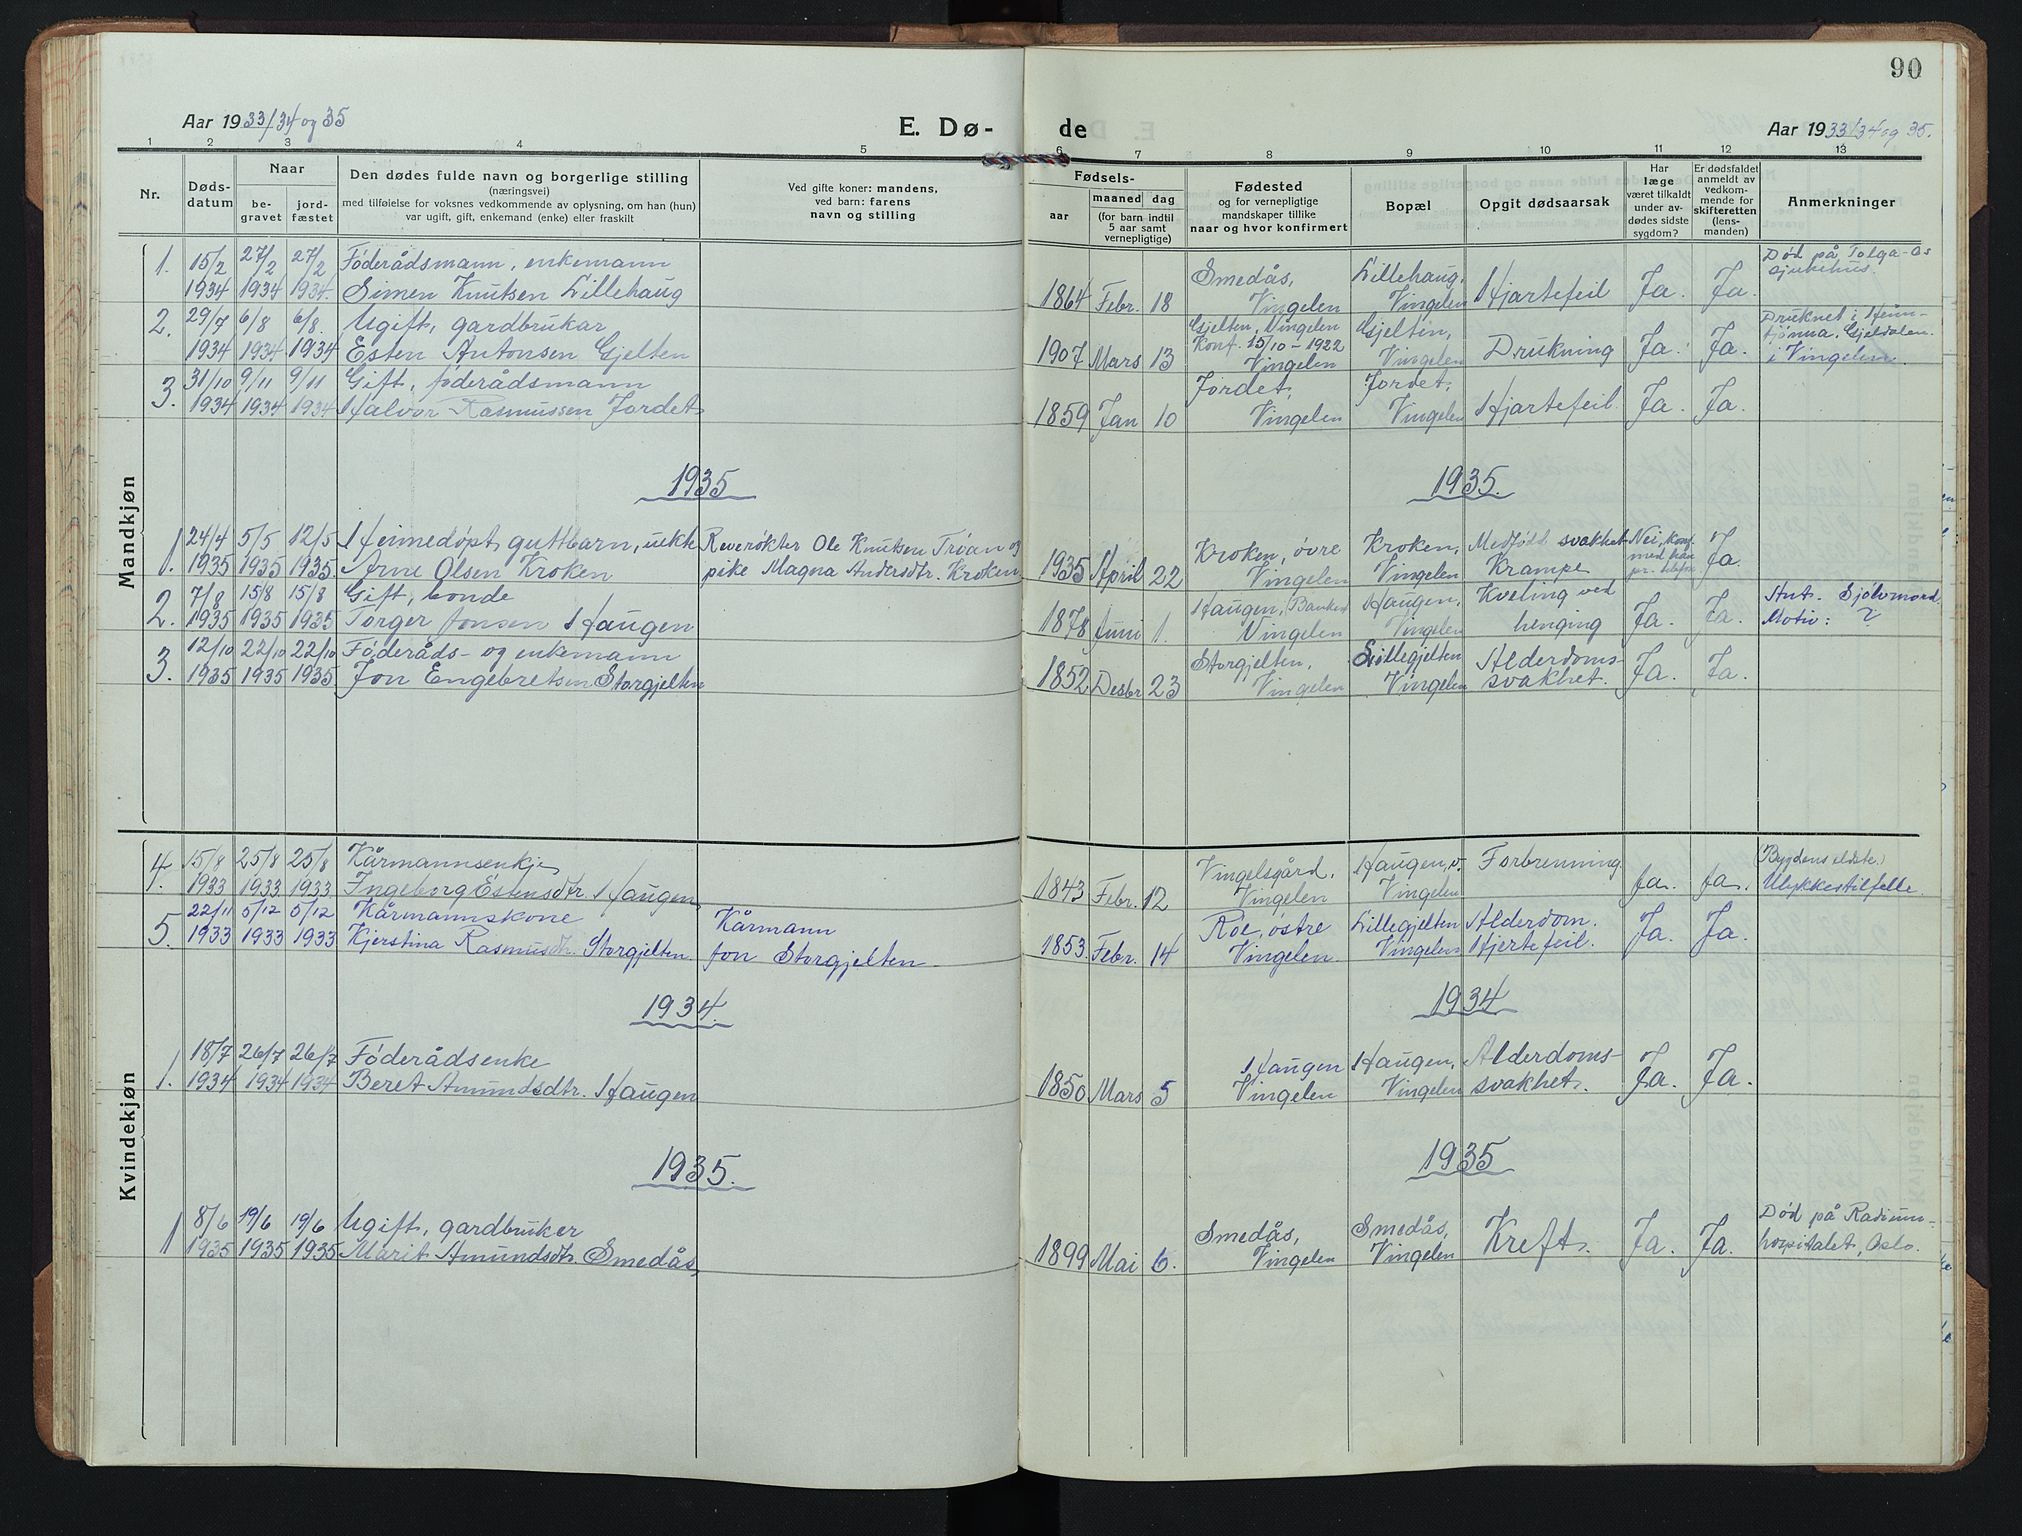 90
Aar 1933/34 og 35
E. Dø-
de
Aar 1933/34 og 35.
1 2 3 4 5 6 7 8 9 10 11 12 13
Nr.
Døds-
datum
Naar
be-
gravet
jord-
fæstet
Den dødes fulde navn og borgerlige stilling
(næringsvei)
med tilføielse for voksnes vedkommende av oplysning, om han (hun)
var ugift, gift, enkemand (enke) eller fraskilt
Ved gifte koner: mandens,
ved barn: farens
navn og stilling
Fødsels-
aar
maaned dag
(for barn indtil
5 aar samt
vernepligtige)
Fødested
og for vernepligtige
mandskaper tillike
naar og hvor konfirmert
Bopæl
Opgit dødsaarsak
Har
læge
været tilkaldt
under av-
dødes sidste
sygdom?
Er dødsfaldet
anmeldt av
vedkom-
mende for
skifteretten
(lens-
manden)
Anmerkninger
Mandkjøn
1. 15/2 27/2 27/2 Føderådsmann, enkemann Smedås, Lillehaug, Død på Tolga-Os
1934 1934 1934. Simen Knutsen Lillehaug 1864 Febr. 18 Vingelen Vingelen Hjartefeil Ja. Ja. sjukehus.
2. 29/7 6/8 6/8. Ugift, gardbrukar Gjelten, Vingelen Gjelten, Druknet i
1934 1934 1934 Esten Antonsen Gjelten 1907 Mars 13 Konf. 15/10-1922 Vingelen Drukning Ja. Ja. tjønna, Gjeldalen
Vingelen i Vingelen.
3. 31/10 9/11 9/11 Gift, føderådsmann Jordet, Jordet,
1934 1934 1934 Halvor Rasmussen Jordet 1859 Jan 10 Vingelen Vingelen Hjartefeil. Ja. Ja.
1935 1935.
1. 24/4 5/5 12/5 Heimedøpt guttbarn, uekte Reverøkter Ole Knutsen Trøan og Kroken, øvre Kroken, Medfødt svakhet Nei, konf.
1935 1935 1935 Arne Olsen Kroken pike Magna Andersdtr. Kroken 1935 April 22 Vingelen Vingelen Krampe med han Ja.
pr. telefon
2. 7/8 15/8 15/8 Gift, bonde Haugen, Haugen, Kveling ved Ant. Sjølvmord.
1935 1935 1935 Torger Jonsen Haugen 1878 Juni 1. Vingelen Vingelen henging Ja. Ja. Motiv: ?
3. 12/10 22/10 22/10 Føderåds- og enkemann Storgjelten, Lillegjelten Alderdoms-
1935 1935 1935 Jon Engebretsen Storgjelten 1852 Desbr 23 Vingelen Vingelen svakhet. Ja. Ja.
Kvindekjøn
4. 15/8 25/8 25/8 Kårmannsenkje Vingelsgård, Haugen, v. Forbrenning (Bygdens eldste.)
1933 1933 1933 Ingeborg Estensdtr. Haugen 1843 Febr. 12 Vingelen Vingelen Ja. Ja. Ulykkestilfelle.
5. 22/11 5/12 5/12 Kårmannskone Kårmann Røe, østre Lillegjelten Alderdom.
1933 1933 1933 Kjerstina Rasmusdtr. Storgjelten Jon Storgjelten 1853 Febr. 14 Vingelen. Vingelen Hjertefeil. Ja. Ja.
1934. 1934
1. 18/7 26/7 26/7 Føderådsenke Haugen Haugen, Alderdoms-
1934 1934 1934 Beret Amundsdtr. Haugen 1850 Mars 5 Vingelen Vingelen svakhet. Ja. Ja.
1935. 1935
1 8/6 19/6 19/6 Ugift, gardbruker Smedås, Smedås, Død på Radium-
1935 1935 1935 Marit Amundsdtr. Smedås, 1899 Mai 6. Vingelen Vingelen Kreft. Ja. Ja. hospitalet, Oslo.